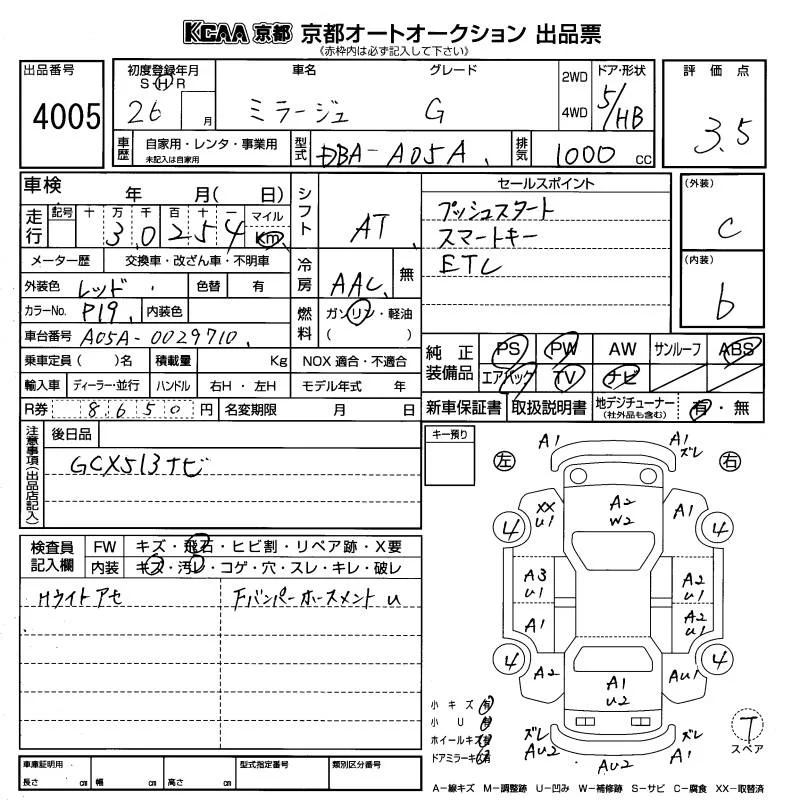 KCAA 京都 京都オートオークション 出品票
(赤枠内は必ず記入して下さい)
出品番号 初度登録年月 車名 グレード 2WD ドア・形状 評価点
S H R
4005 26 月 ミラージュ G 4WD 5/HB 3.5
車歴 自家用・レンタ・事業用 型式 DBA-A05A 排気 1000 cc
未記入は自家用
車検 年 月( 日) シフト AT セールスポイント (外装)
走行 記号 十 万 千 百 十 一 マイル プッシュスタート C
3 0 2 5 4 Km スマートキー
メーター歴 交換車・改ざん車・不明車 冷房 AAC 無 ETC (内装)
外装色 レッド 色替 有 b
カラーNo. P19 内装色 燃料 ガソリン・軽油
車台番号 A05A-0029710 ( )
乗車定員( )名 積載量 Kg NOX 適合・不適合 純正装備品 PS PW AW サンルーフ ABS
輸入車 ディーラー・並行 ハンドル 右H・左H モデル年式 年 エアバッグ TV ナビ
R券 8650円 名変期限 月 日 新車保証書 取扱説明書 地デジチューナー (社外品も含む) 有・無
注意事項(出品店記入) 後日品 キー預り
GCX513ナビ
左 右
A1 A1 ズレ
XX U1 A2 W2 A1
4 4
A3 U1 A2 U1
A1 A2 U1
4 4
A2 A1 U2 AU1
ズレ AU2 AU2 ズレ A1
T スペア
検査員記入欄 FW キズ・飛石・ヒビ割・リペア跡・X要
内装 キズ・汚レ・コゲ・穴・スレ・キレ・破レ
Hライトアセ FバンパーホースメントU
小キズ 有
小U 有
ホイールキズ 有
ドアミラーキズ 有
車庫証明用 型式指定番号 類別区分番号
長さ cm 幅 cm 高さ cm
A-線キズ M-調整跡 U-凹み W-補修跡 S-サビ C-腐食 XX-取替済